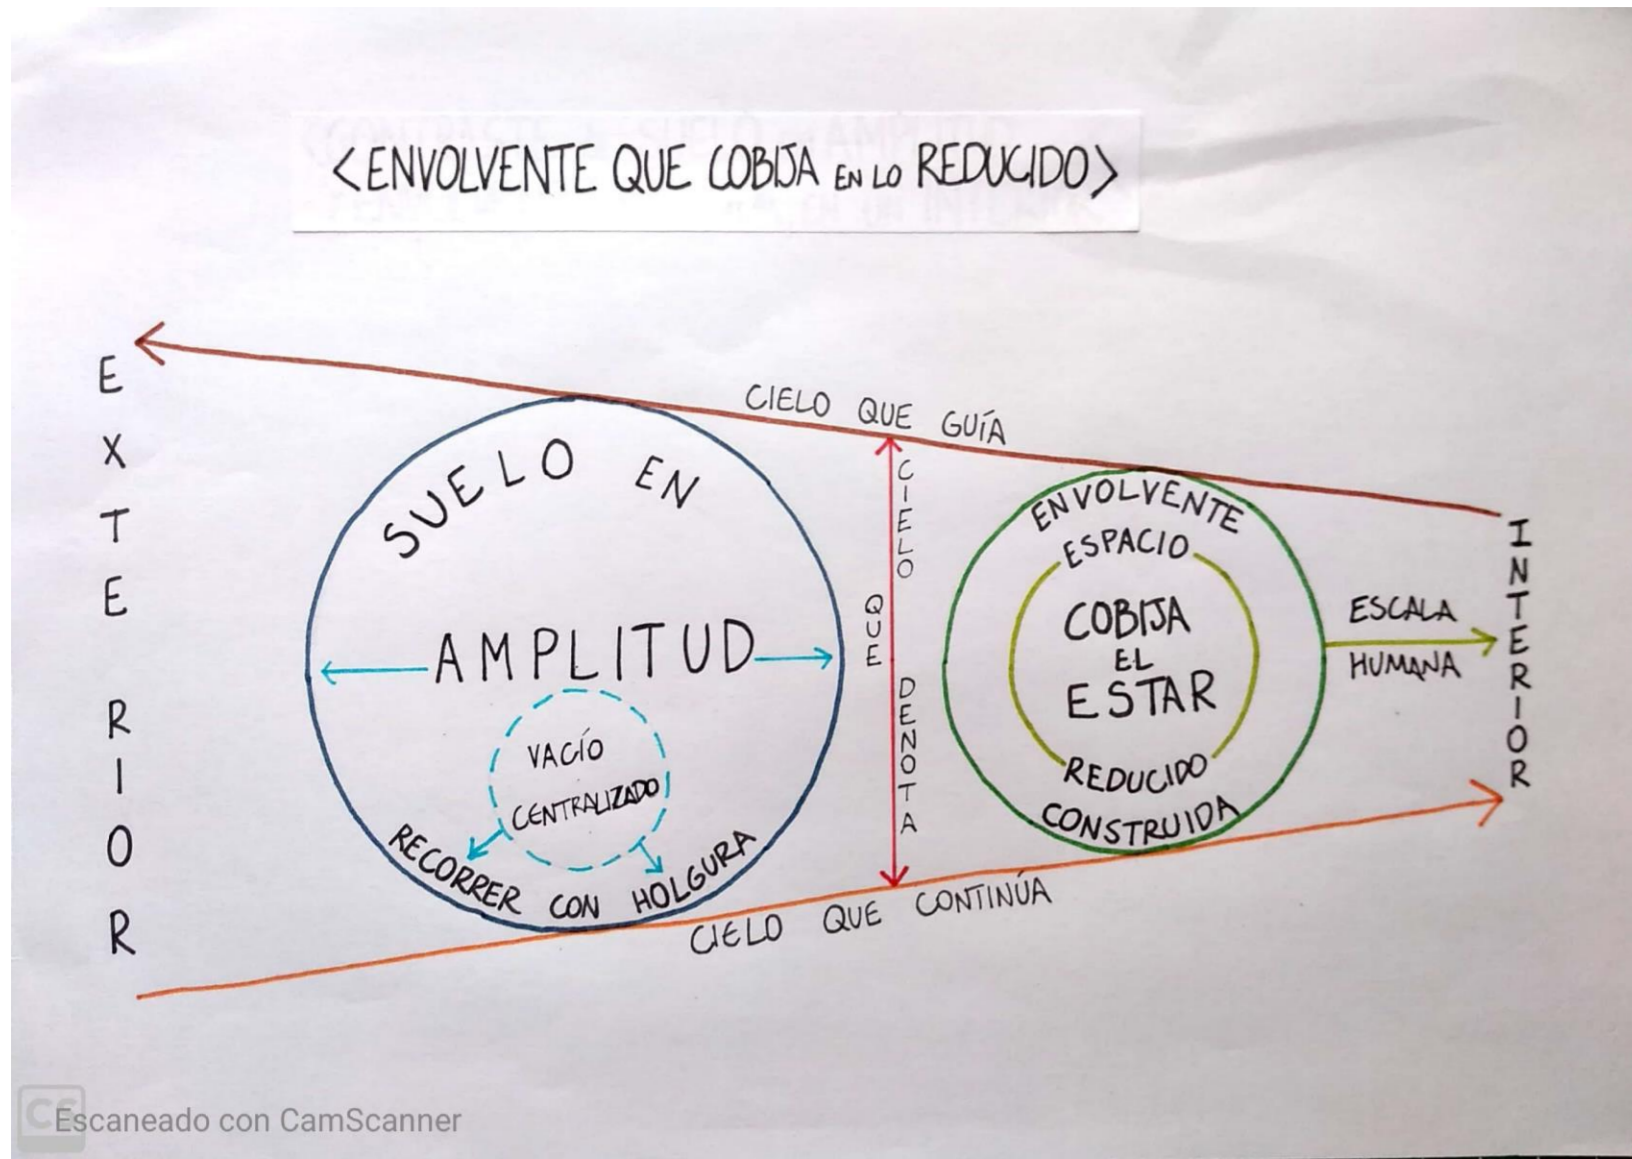 <ENVOLVENTE QUE COBIJA EN LO REDUCIDO>
EXTERIOR
CIELO QUE GUÍA
SUELO EN
AMPLITUD
VACÍO
CENTRALIZADO
RECORRER CON HOLGURA
CIELO QUE DENOTA
ENVOLVENTE
ESPACIO
COBIJA
EL
ESTAR
REDUCIDO
CONSTRUIDA
ESCALA
HUMANA
INTERIOR
CIELO QUE CONTINÚA
CS
Escaneado con CamScanner